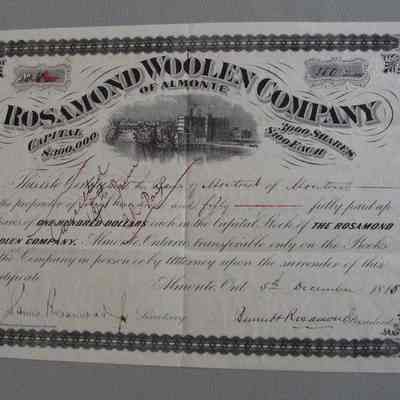 ROSAMOND WOOLEN COMPANY
OF ALMONTE
CAPITAL
$300,000
3000 SHARES
$100 EACH
This is to Certify the Bank of Montreal of Montreal
the property of hundred and fifty fully paid up
Shares of ONE HUNDRED DOLLARS each in the Capital Stock of THE ROSAMOND
WOOLEN COMPANY. Almonte, Ontario, transferable only on the Books
the Company in person or by Attorney upon the surrender of this
Certificate
Almonte, Ont 5th December 18
James Rosamond Jr Secretary Bennett Rosamond President